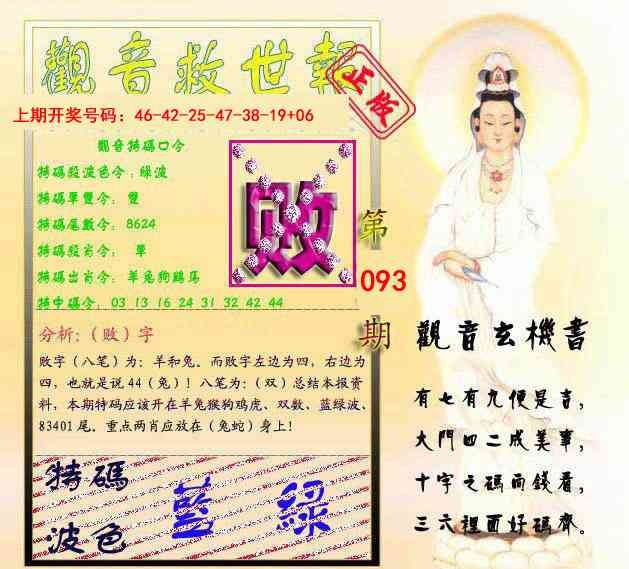 觀音救世報
正版
上期开奖号码：46-42-25-47-38-19+06
觀音特碼口令
特碼段波色令：綠波
特碼單雙令： 雙
特碼尾數令： 8624
特碼段肖令： 單
特碼出肖令：羊兔狗鷄馬
特中碼令：03 13 16 24 31 32 42 44
败
第
093
期
分析：（败）字
败字（八笔）为：羊和兔。而败字左边为四，右边为
四，也就是说44（兔）！八笔为：（双）总结本报资
料，本期特码应该开在羊兔猴狗鸡虎、双数、蓝绿波、
83401尾。重点两肖应放在（兔蛇）身上！
特碼
波色
藍 綠
觀音玄機書
有七有九便是吉，
大門四二成美事，
十字之碼両錢看，
三六裡面好碼齊。